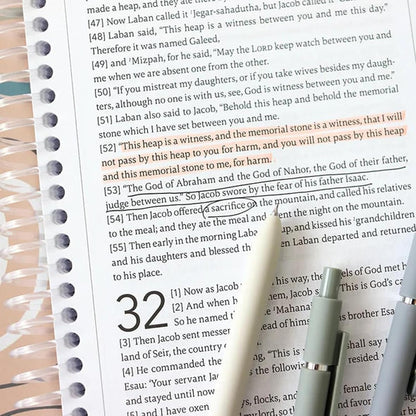 made a heap, and they ate there by
[47] Now Laban called it Jegar-sahadutha, but Jacob called it
[48] Laban said, "This heap is a witness between you and me this day."
Therefore it was named Galeed,
[49] and Mizpah, for he said, "May the LORD keep watch between you and
me when we are absent one from the other.
[50] "If you mistreat my daughters, or if you take wives besides my daugh-
ters, although no one is with us, see, God is witness between you and me."
[51] Laban also said to Jacob, "Behold this heap and behold the memorial
stone which I have set between you and me.
[52] "This heap is a witness, and the memorial stone is a witness, that I will
not pass by this heap to you for harm, and you will not pass by this heap
and this memorial stone to me, for harm.
[53] "The God of Abraham and the God of Nahor, the God of their father,
judge between us." So Jacob swore by the fear of his father Isaac.
[54] Then Jacob offered a sacrifice on the mountain, and called his relatives
to the meal; and they ate the meal and spent the night on the mountain.
[55] Then early in the morning Laban up, and kissed his grandchildren
and his daughters and blessed Then Laban departed and returned
to his place.
32
[1] Now as Jacob his way, the angels of God met
[2] And when he them, "This is God's
So he named Mahan
[3] Then Jacob sent messen head of him his brother Esau
land of Seir, the country
[4] He commanded the "This shall say
Esau: 'Your servant Jaco s the resided
and stayed until now
[5] and I have oxen ys, flocks, and female
to my lord, so